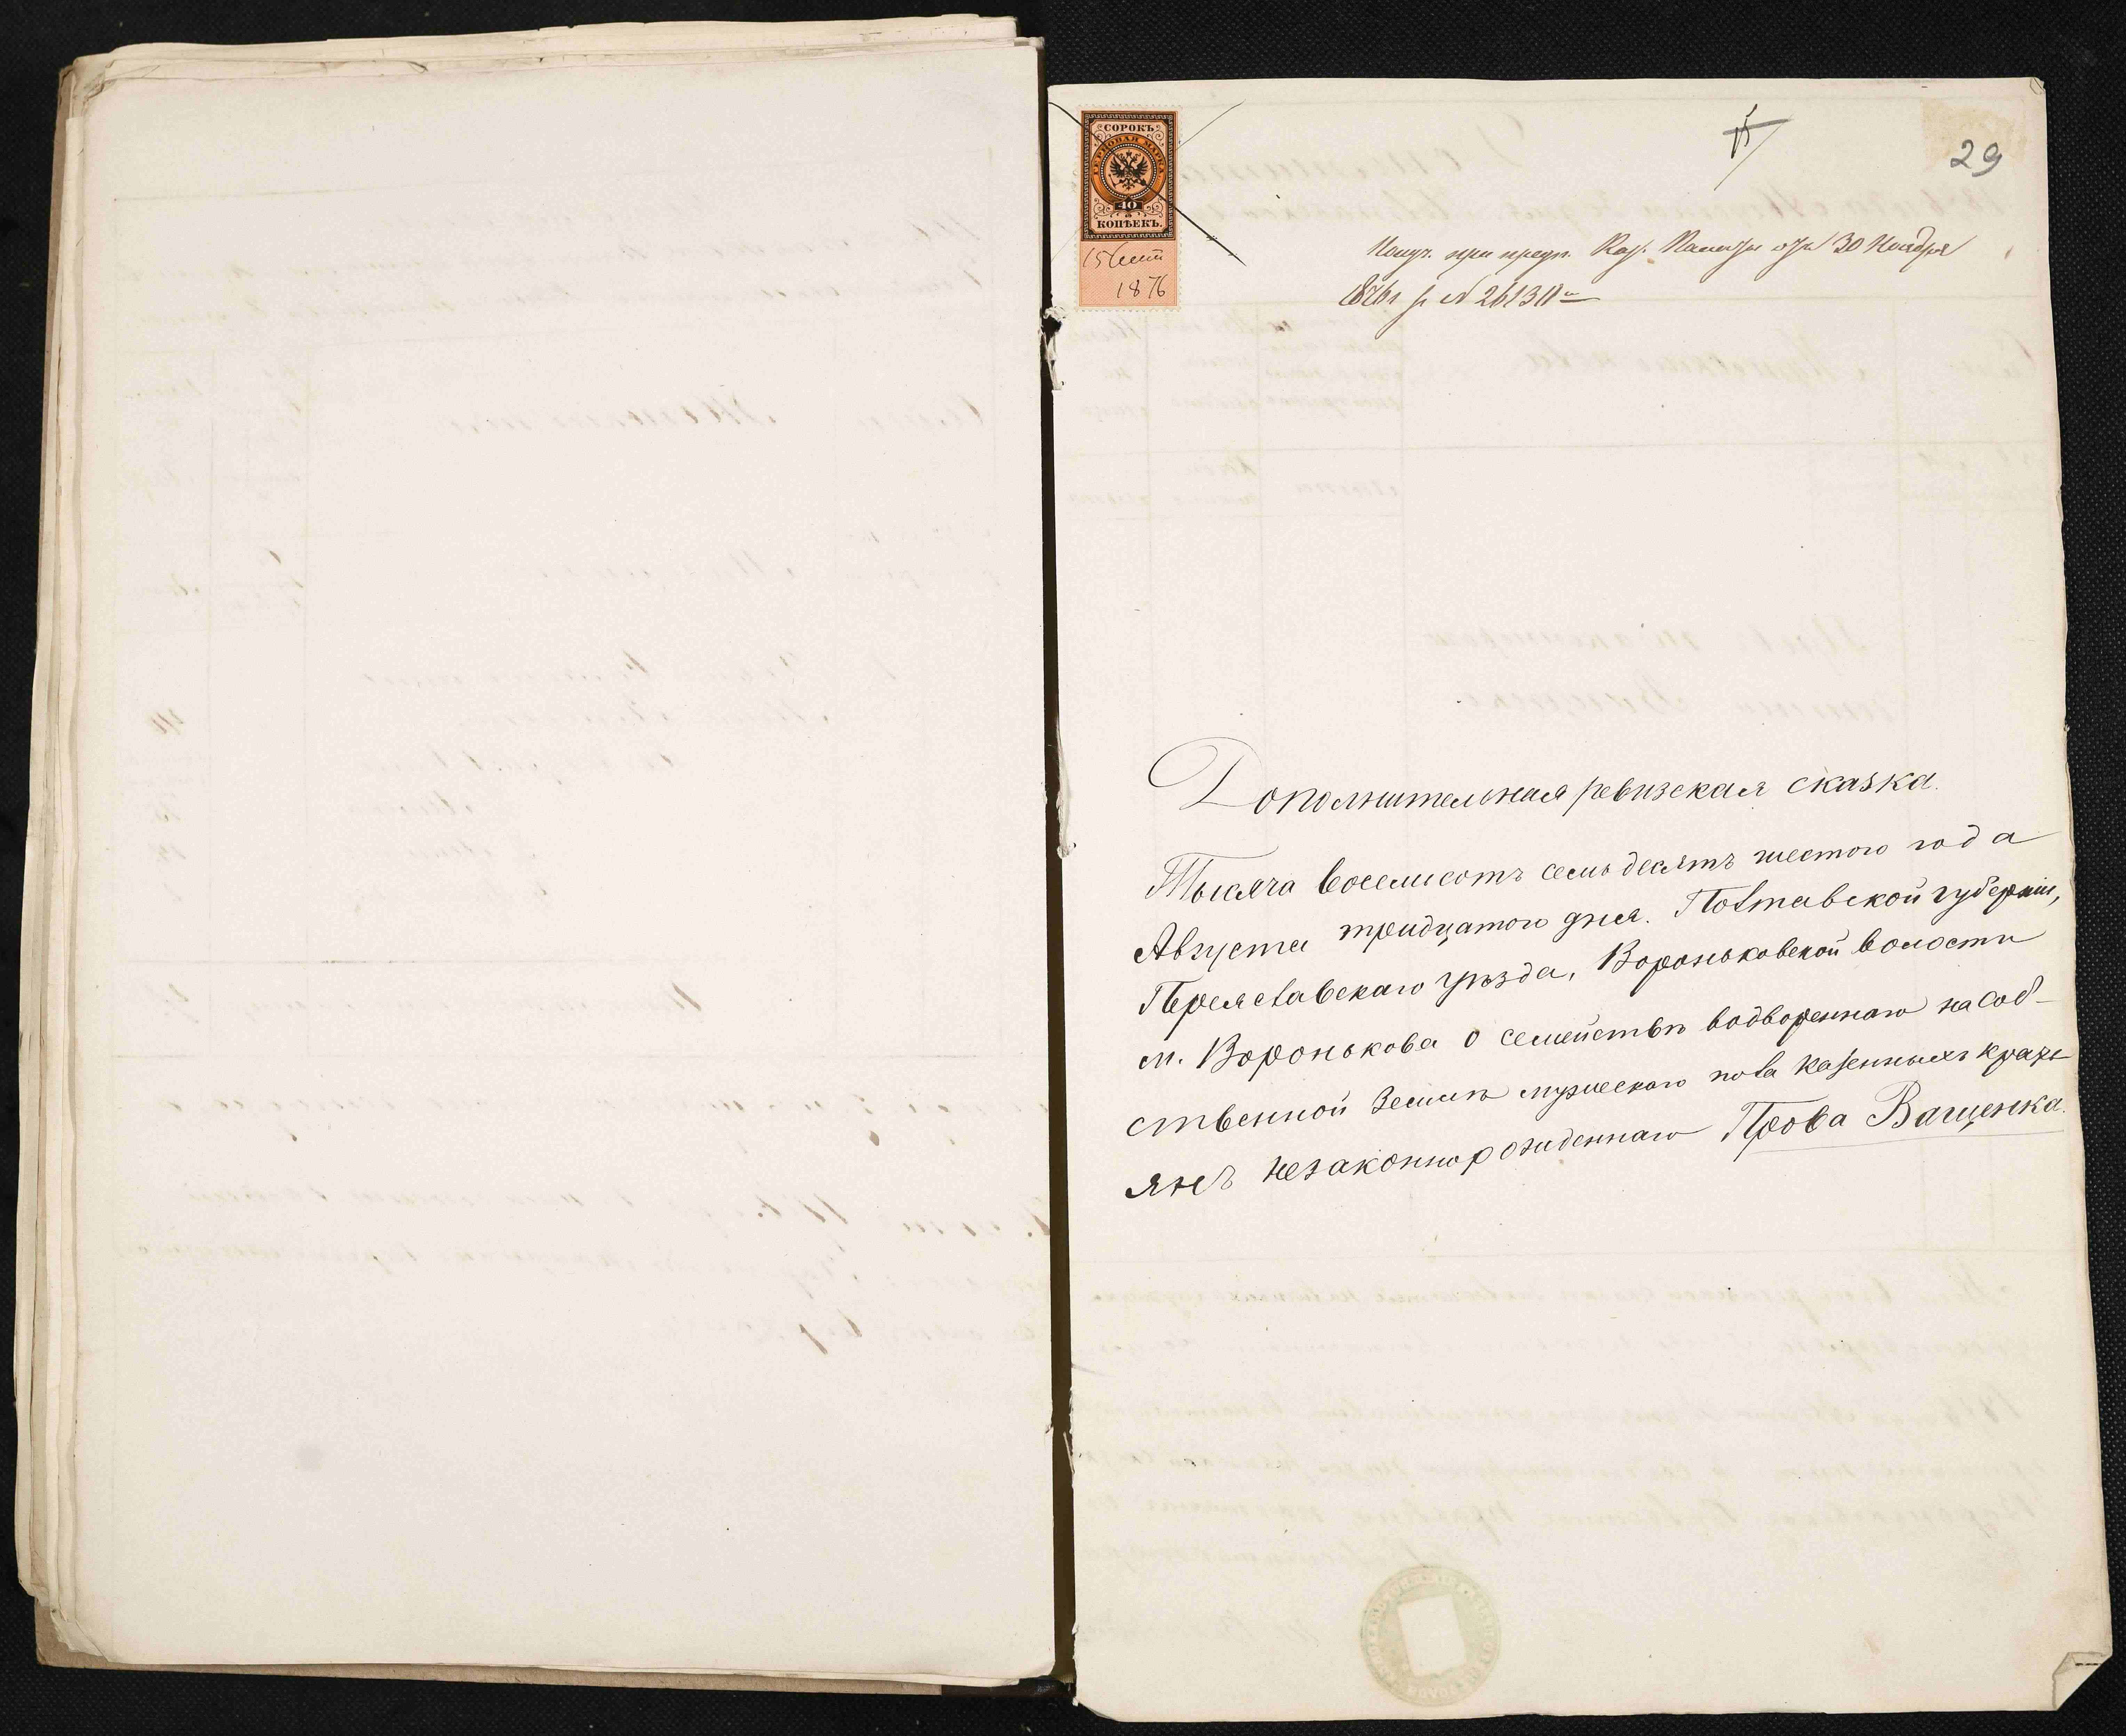 СОРОКЪ
ГЕРБОВАЯ МАРКА
40
КОПѢЕКЪ.
15 Сент
1876
29
Получ. при предп. Каз. Палаты отъ 30 Ноября
1876 г. № 26131
Дополнительная ревизская сказка.
Тысяча восемьсотъ семьдесятъ шестого года
Августа тридцатого дня. Полтавской губерніи,
Переяславскаго уѣзда, Вороньковской волости
м. Воронькова о семействѣ водвореннаго на соб-
ственной землѣ мужескаго пола казенныхъ кресть
янъ незаконнорожденнаго Прова Ващенка.